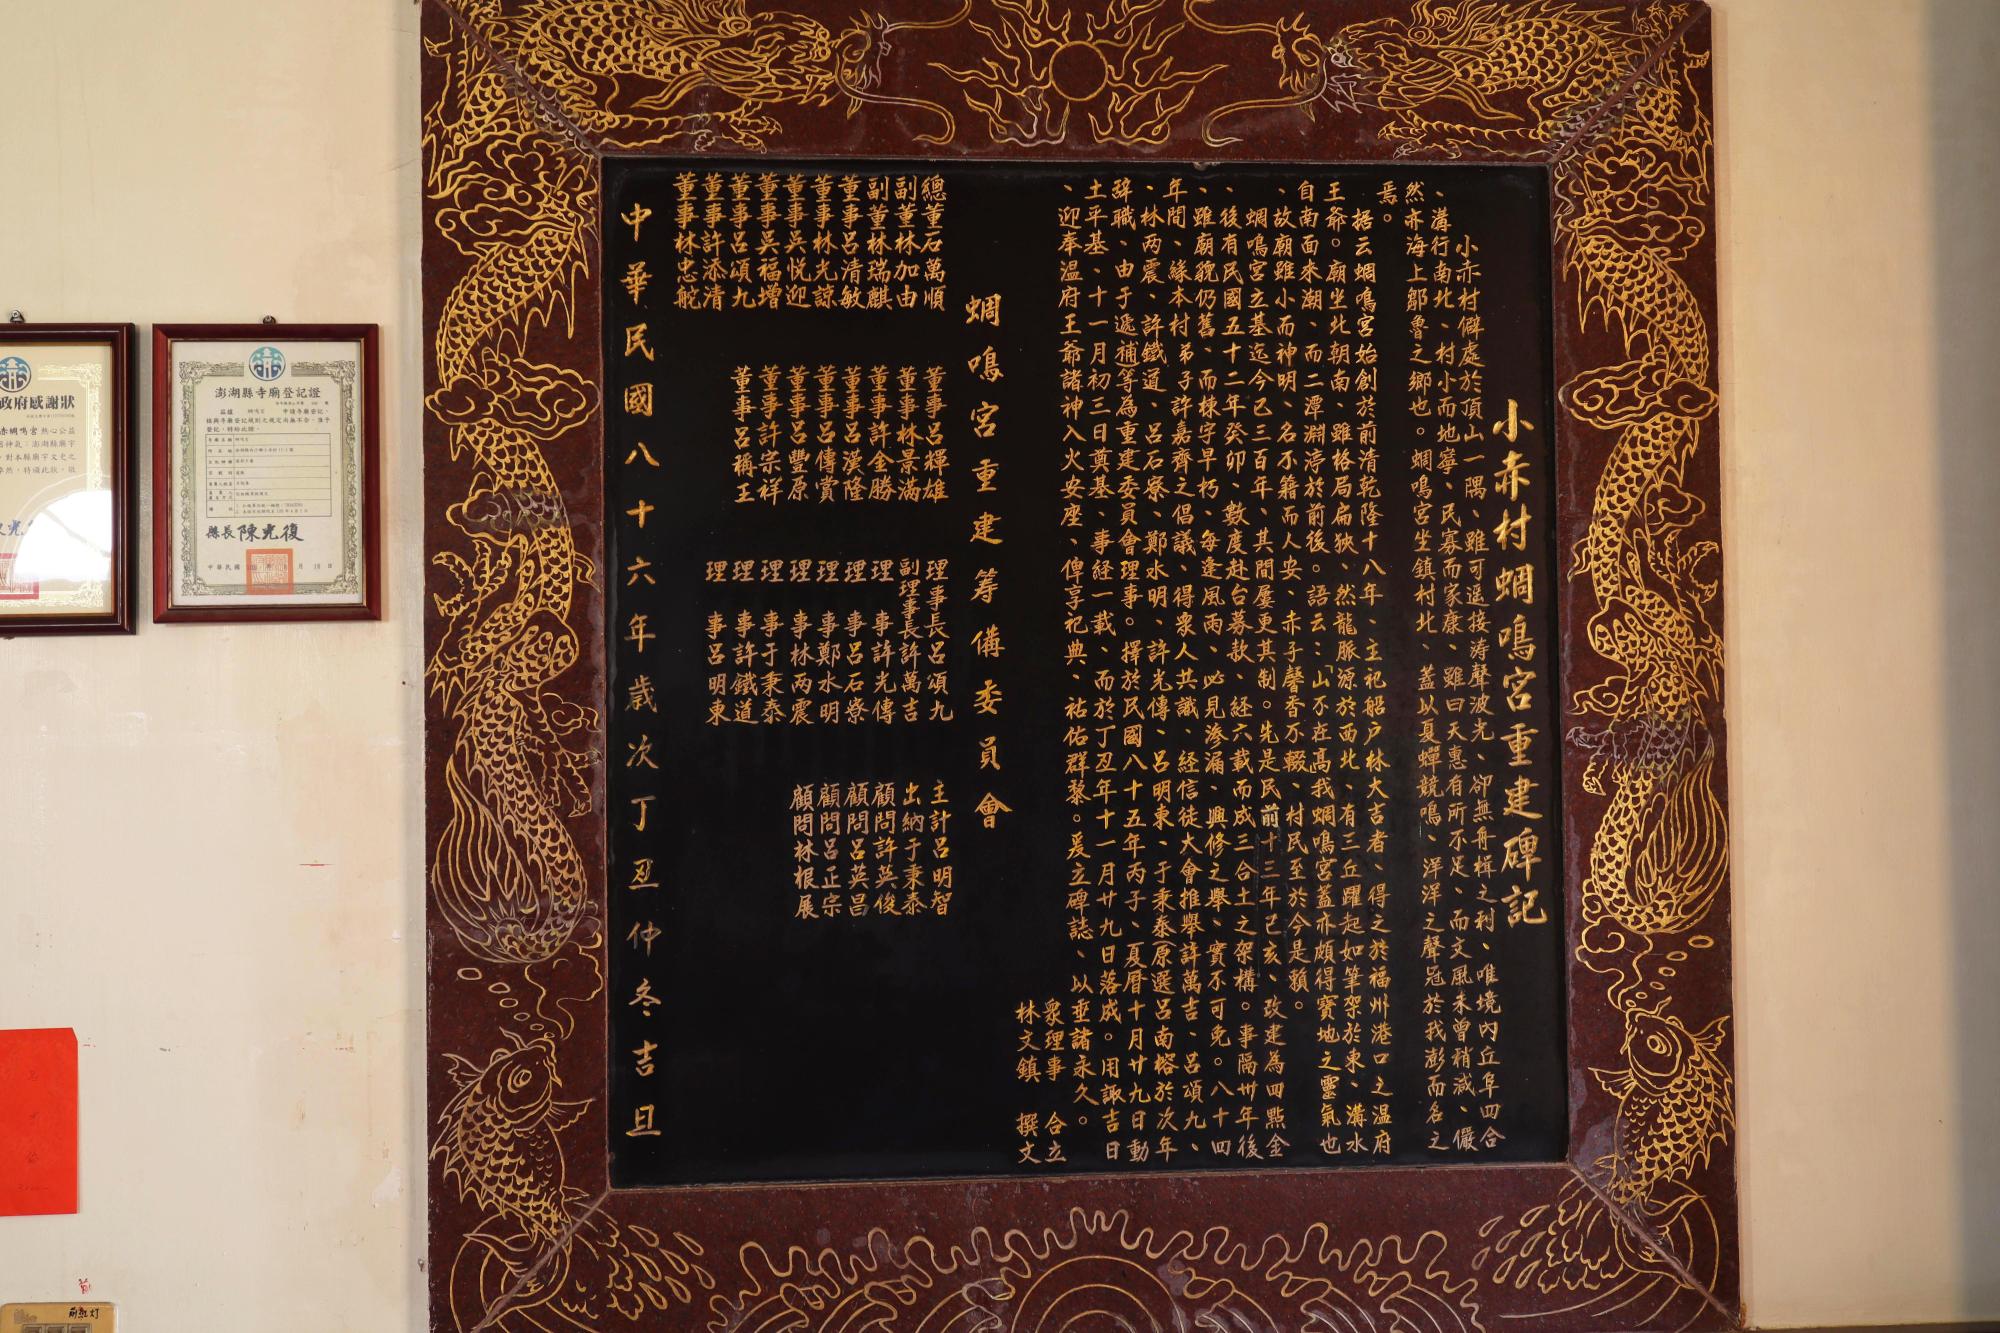 小赤村蜩鳴宮重建碑記
小赤村僻處於頂山一隅、雖可遥接涛聲波光、卻無舟楫之利、唯境內丘阜四合
、溝行南北、村小而地寧、民寡而家康、雖曰天惠有所不足、而文風未曾稍減、儼
然亦海上鄒魯之鄉也。蜩鳴宮坐鎮村北、蓋以夏蟬競鳴、洋洋之聲冠於我澎而名之
焉。
据云蜩鳴宮始創於前清乾隆十八年、主祀船户林大吉者、得之於福州港口之温府
王爺。廟坐北朝南、雖格局扁狹、然龍脈源於西北、有三丘躍起如筆架於東、溝水
自南面來潮、而二潭淵渟於前後。語云：「山不在高」我蜩鳴宮蓋亦頗得寶地之靈氣也
、故廟雖小而神明、名不籍而人安、赤子馨香不輟、村民至於今是賴。
蜩鳴宮立基迄今已三百年、其間屢更其制。先是民前十三年己亥、改建為四點金
、後有民國五十二年癸卯、數度赴台募款、経六載而成三合土之架構。事隔卅年後
、雖廟貌仍舊、而棟宇早朽、每逢風雨、必見滲漏、興修之舉、實不可免。八十四
年間、緣本村弟子許嘉齊之倡議、得衆人共識、経信徒大會推舉許萬吉、呂頌九、
、林两震、許鐵道、呂石寮、鄭水明、許光傳、呂明東、于秉泰(原選呂南榕於次年
辞職、由于遞補)等為重建委員會理事。擇於民國八十五年丙子、夏曆十月廿九日動
土平基、十一月初三日奠基、事経一載、而於丁丑年十一月廿九日落成。用諏吉日
、迎奉溫府王爺諸神入火安座、俾享祀典、祜佑群黎。爰立碑誌、以垂諸永久。
衆理事　合立
林文鎮　撰文
蜩鳴宮重建筹備委員會
總董石萬順　董事呂輝雄　理事長呂頌九　主計呂明智
副董林加由　董事林景滿　副理事長許萬吉　出納于秉泰
副董林瑞麒　董事許金勝　理事許光傳　顧問許英俊
董事呂清敏　董事呂漢隆　理事呂石寮　顧問呂英昌
董事林光諒　董事呂傳賞　理事鄭水明　顧問呂正宗
董事吳悦迎　董事呂豐原　理事林两震　顧問林根展
董事吳福增　董事許宗祥　理事于秉泰
董事呂頌九　董事呂稱王　理事許鐵道
董事許添清　理事呂明東
董事林忠舵
中華民國八十六年歲次丁丑仲冬吉旦
澎湖縣寺廟登記證
縣長陳光復
中華民國　年　月　日
政府感謝狀
赤蜩鳴宮 熱心公益